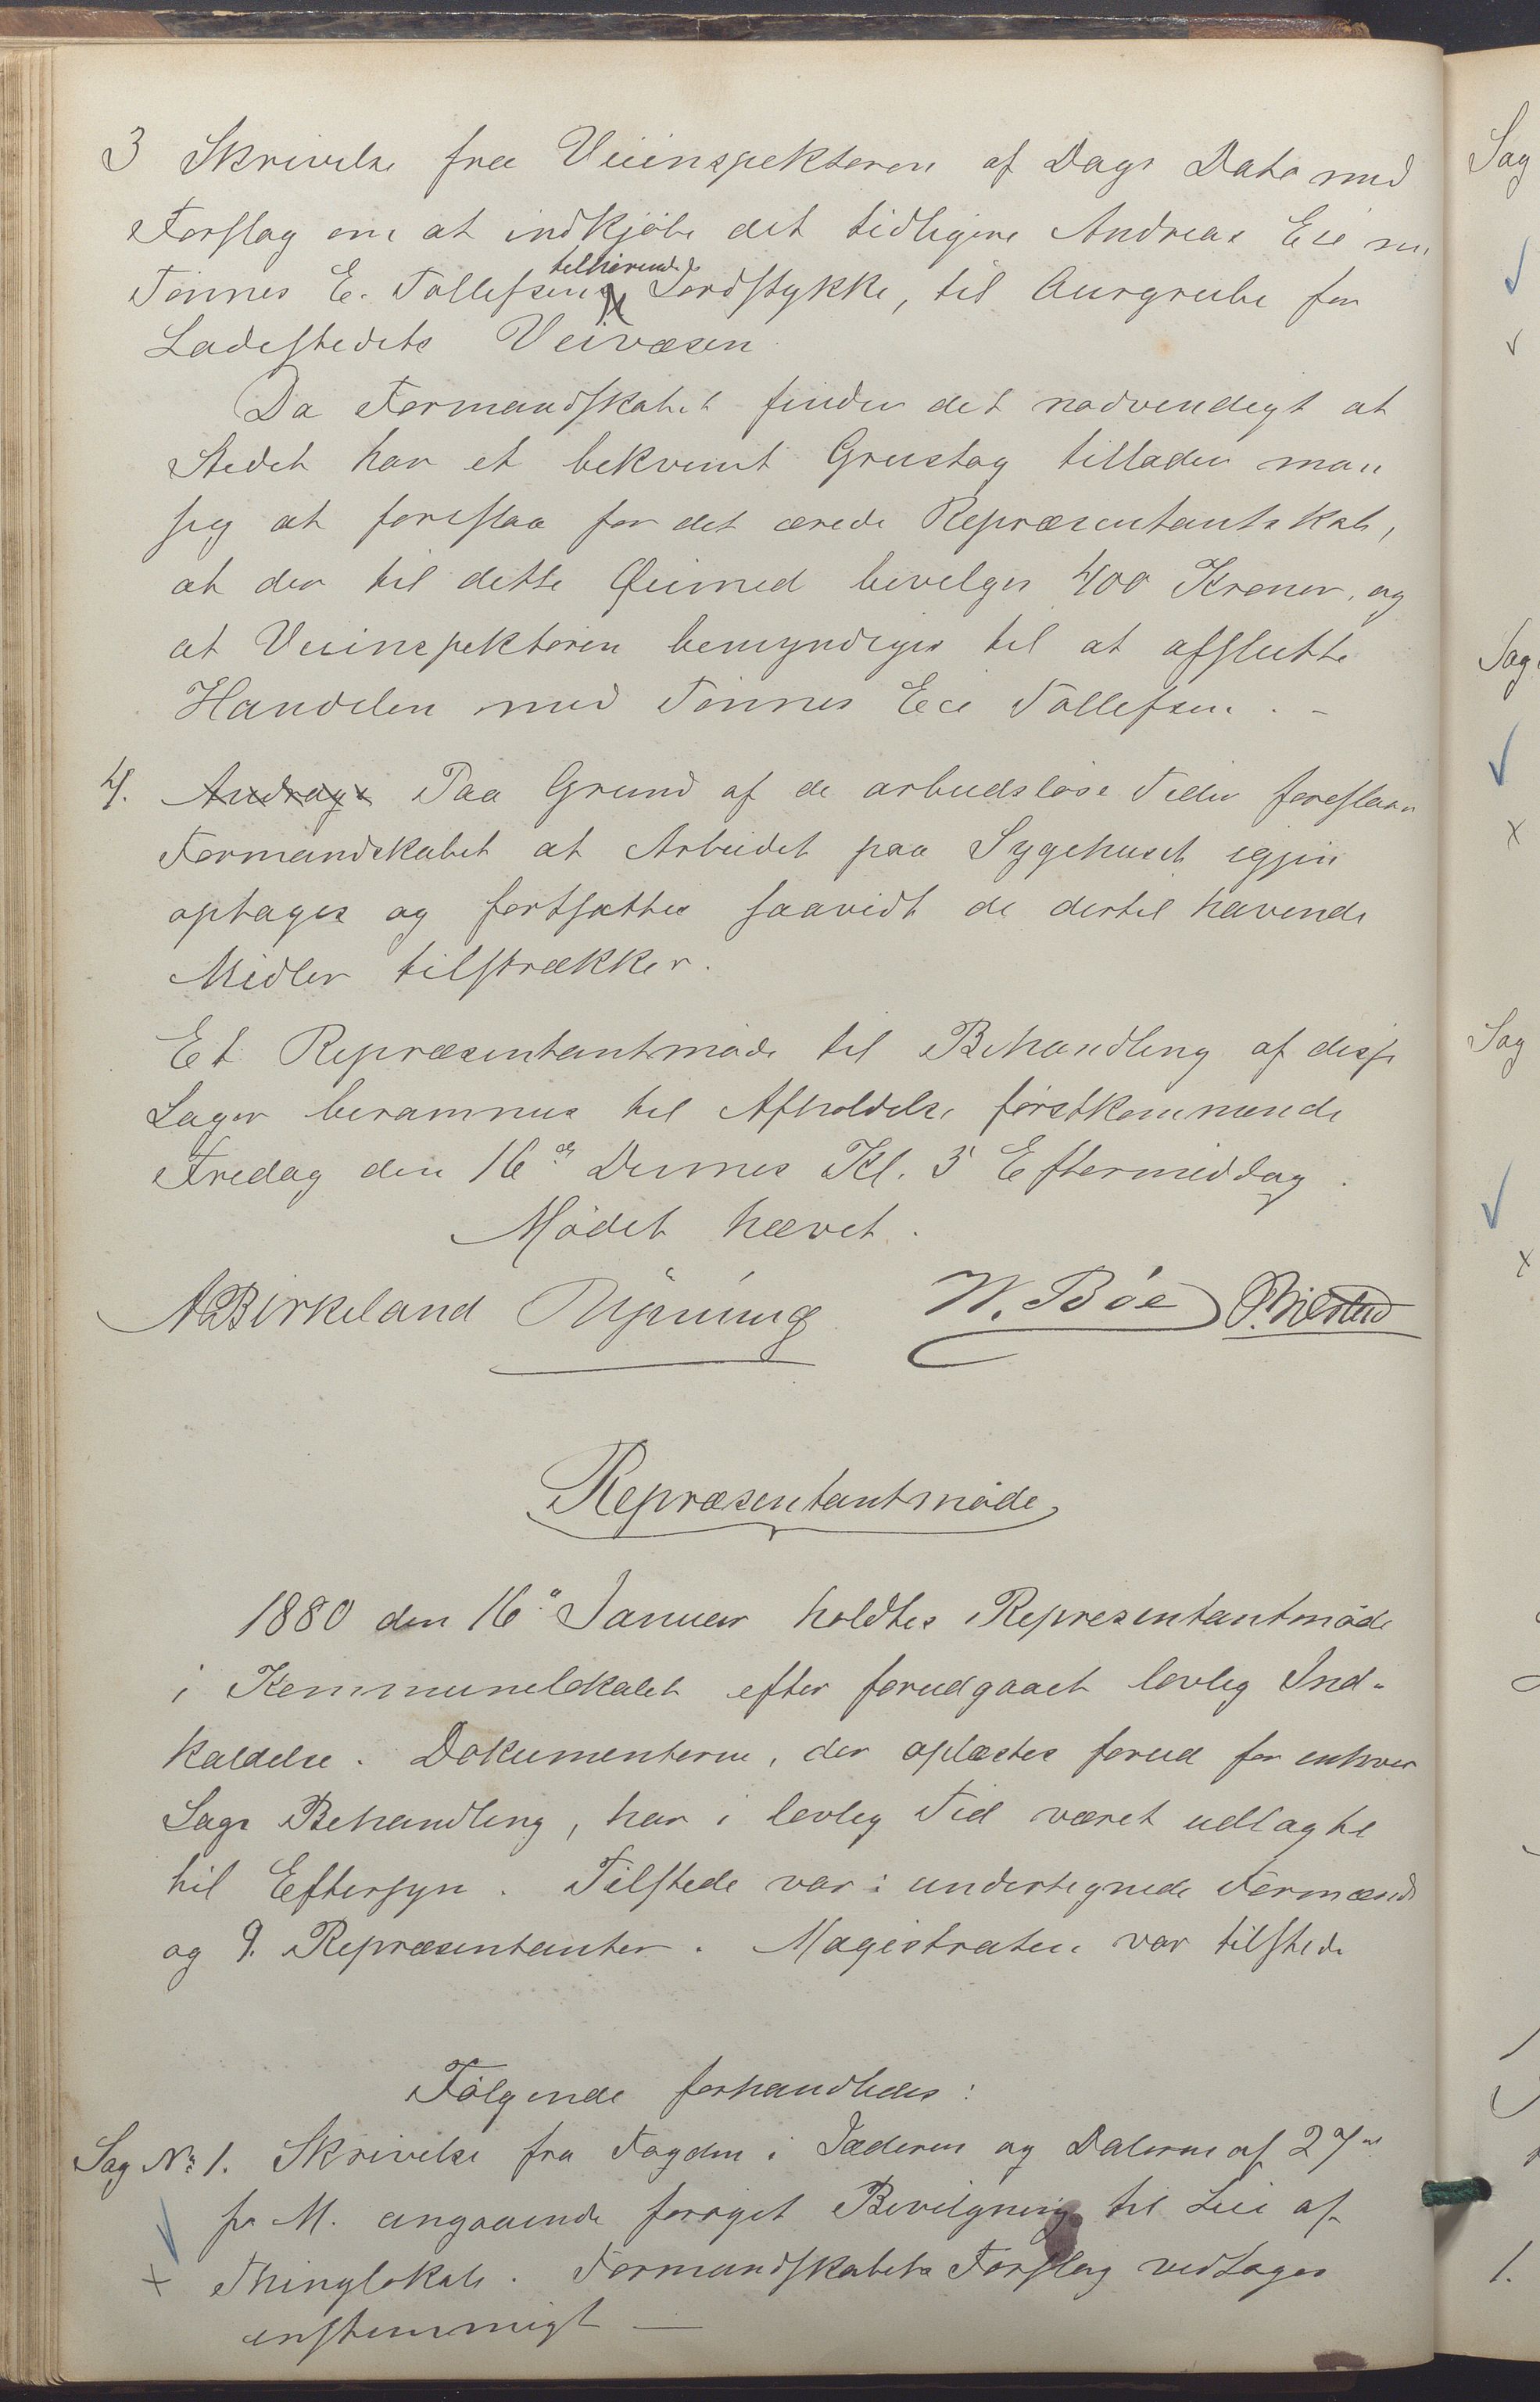 3 Skrivelse fra Veiinspektøren af Dags Dato med
Forslag om at indkjøbe det tidligere Andreas Eie nu
tilhørende
Tønnes E. Tollefsen Jordstykke, til Aurgrube for
Ladestedets Veivæsen
Da Formandskabet finder det nødvendigt at
Stedet har et bekvemt Grustag tillader man
sig at foreslaa for det ærede Repræsentantskab,
at der til dette Øiemed bevilges 400 Kroner, og
at Veiinspektøren bemyndiges til at afslutte
Handelen med Tønnes Eie Tollefsen. -
4. Andrage Paa Grund af de arbeidsløse Tider foreslaar
Formandskabet at Arbeidet paa Sygehuset igjen
optages og fortsættes saavidt de dertil havende
Midler tilstrækker.
Et Repræsentantmøde til Behandling af disse
Sager berammes til Afholdelse førstkommende
Fredag den 16de Dennes Kl. 5 Eftermiddag.
Mødet hævet.
A Birkeland W. Böe
Repræsentantmøde
1880 den 16de Januar holdtes Repræsentantmøde
i Kommunelokalet efter forudgaaet lovlig Ind-
kaldelse. Dokumenterne, der oplæstes forud for enhver
Sags Behandling, har i lovlig Tid været udlagte
til Eftersyn. Tilstede var: undertegnede Formænd
og 9. Repræsentanter. Magistraten var tilstede
Følgende forhandledes:
Sag No 1. Skrivelse fra Fogden i Jæderen og Dalerne af 27de
f. M. angaaende forøget Bevilgning til Leie af
x Thinglokale. Formandskabets Forslag vedtages
enstemmigt —
Sag
Sag
Sag
1.